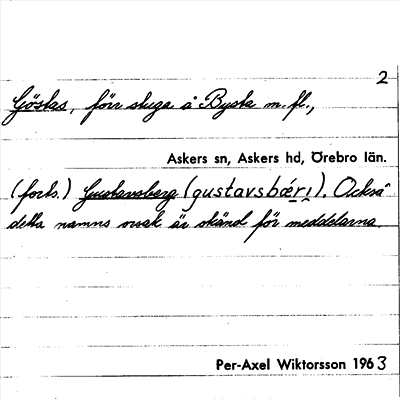 2
Göstas, förr stuga å Bysta m.fl.,
Askers sn, Askers hd, Örebro län.
(forts.) Gustavsberg (gustavsbæ̱rı̯). Också
detta namns orsak är okänd för meddelarna.
Per-Axel Wiktorsson 1963